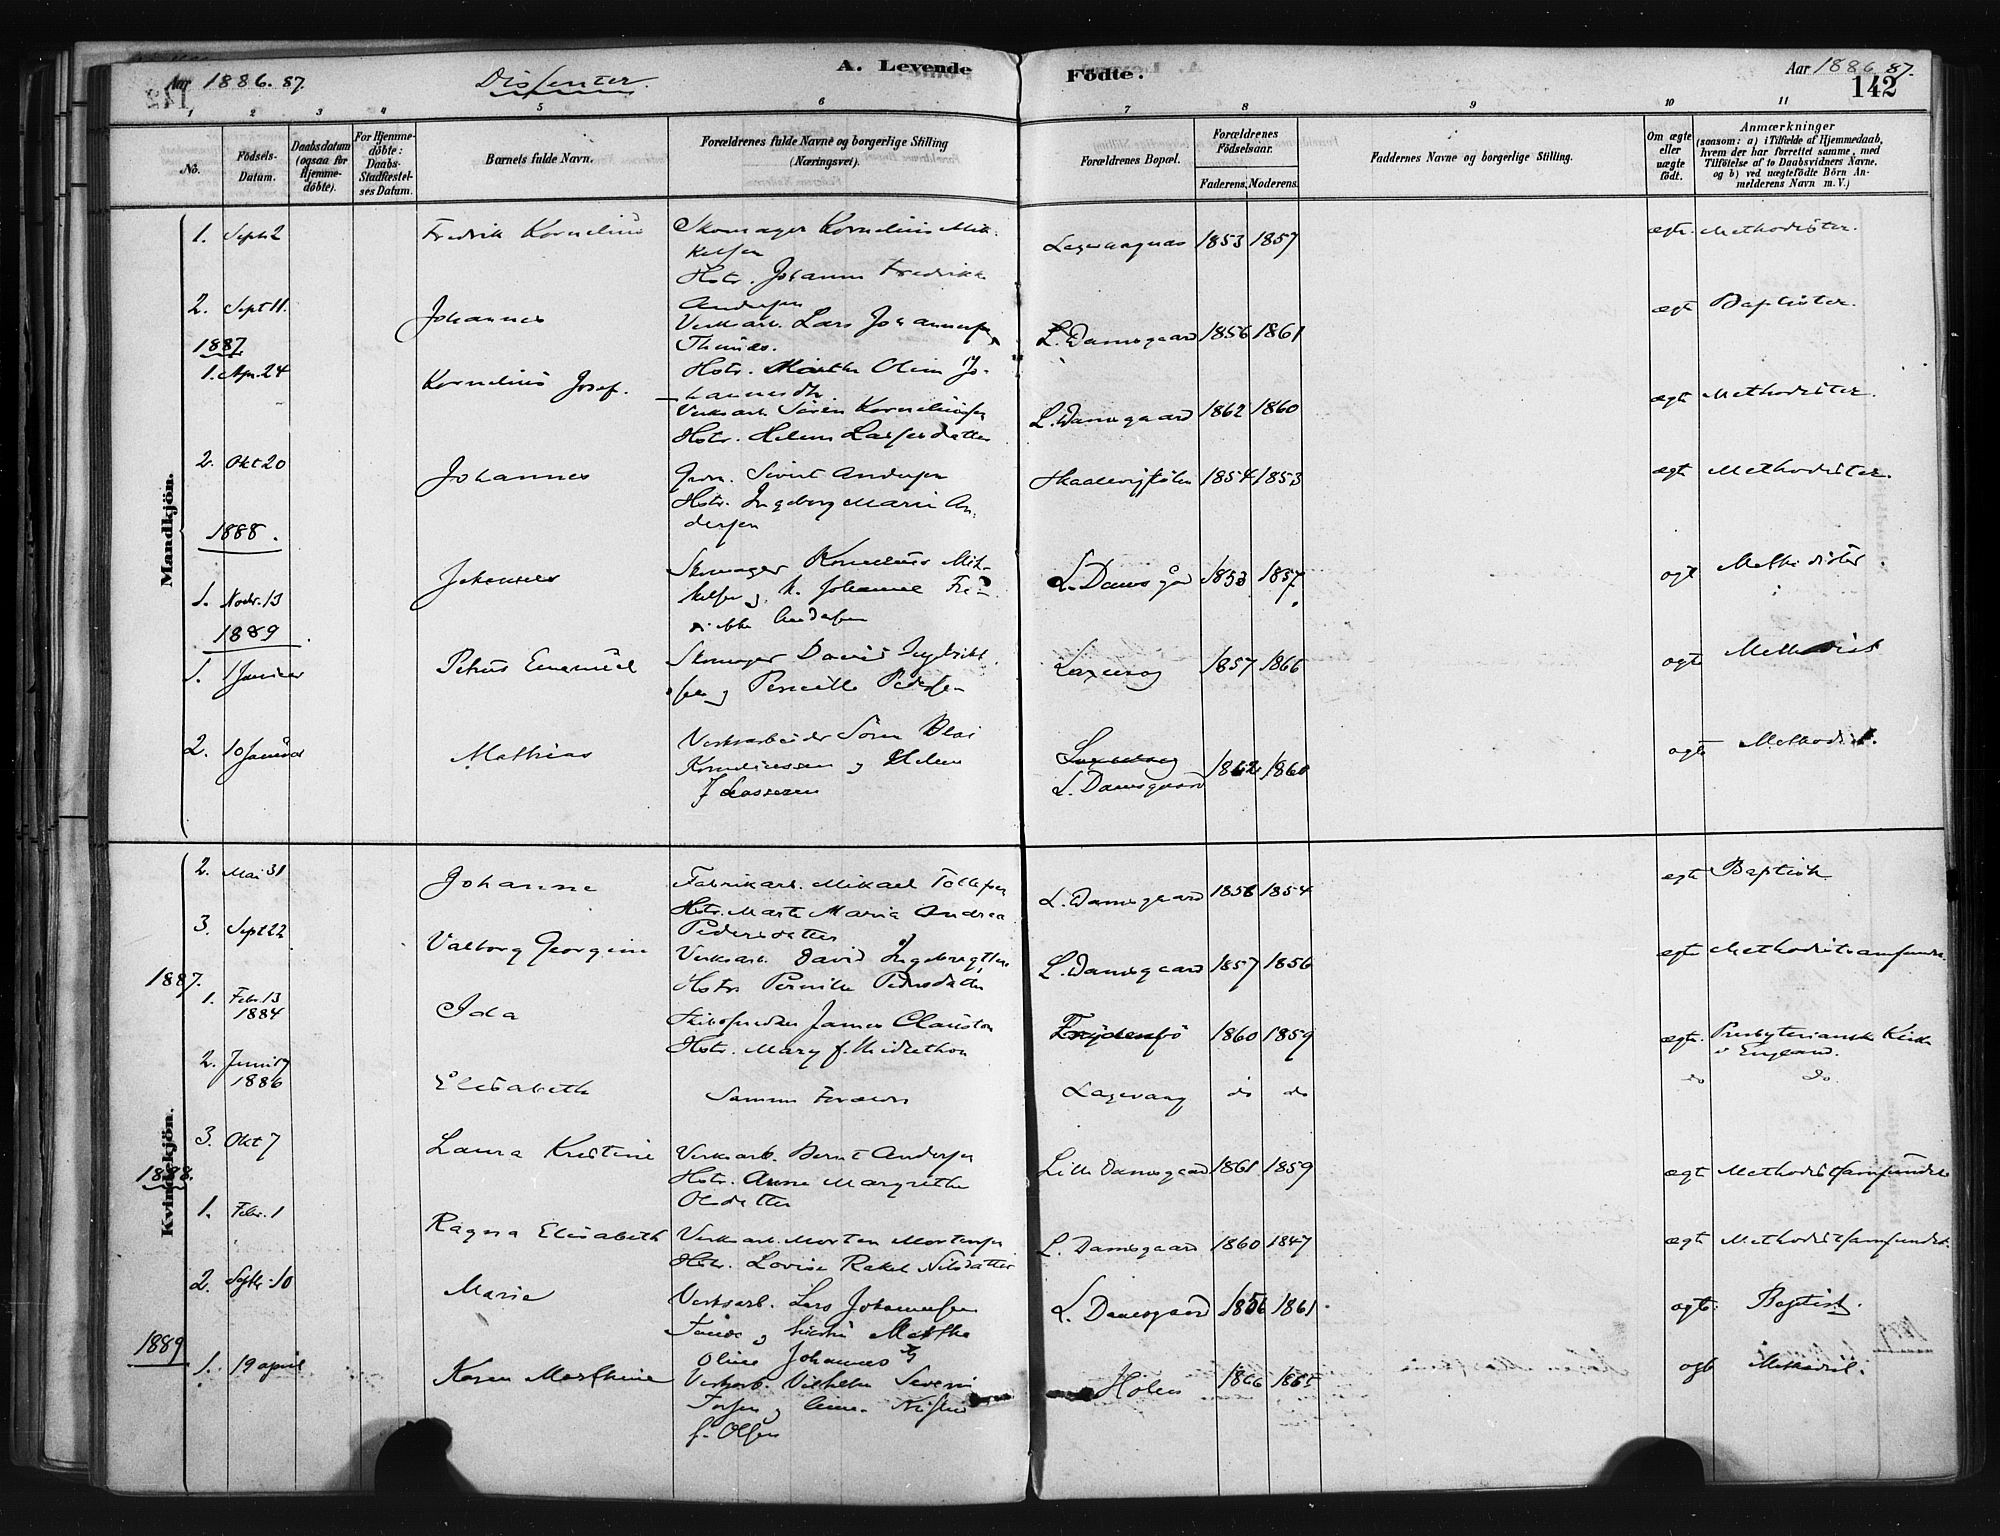 Aar 1886. 87.
Dissenter.
A. Levende Födte.
Aar 1886 87.
142
1 2 3 4 5 6 7 8 9 10 11
No.
Födsels-Datum.
Daabsdatum (ogsaa for Hjemme-döbte).
For Hjemme-döbte: Daabs-Stadfæstel-ses Datum.
Barnets fulde Navn.
Forældrenes fulde Navne og borgerlige Stilling (Næringsvei).
Forældrenes Bopæl.
Forældrenes Födselsaar.
Faderens. Moderens.
Faddernes Navne og borgerlige Stilling.
Om ægte eller uægte födt.
Anmærkninger (saasom: a) i Tilfælde af Hjemmedaab, hvem der har forrettet samme, med Tilföielse af to Daabsvidners Navne, og b) ved uægtefödte Börn An-melderens Navn m. V.)
Mandkjön.
1. Sept 2 Fredrik Kornelius Skomager Kornelius Mik-
kelsen
Hstr. Johanne Fredrikke
Andersen
1853 1857 ægte. Methodister.
2. Sept 11. Johannes Verksarb. Lars Johannessen
Hstr. Marthe Oline Jo-
hannesdtr.
L. Damsgaard 1856 1861 ægt Baptister.
1887
1. Apr. 24 Kornelius Josef. Verksarb. Sören Korneliussen
Hstr. Helene Lassesdatter
L. Damsgaard 1862 1860 ægt Methodister.
2. Okt 20 Johannes Sivert Andersen
Hstr. Ingeborg Marie An-
dersen
1854 1853 ægt Methodister.
1888.
1. Novbr. 13 Johannes Skomager Kornelius Mik-
kelsen og h. Johanne Fre-
Andersen
L. Damsgård 1853 1857 ægt Methodister
1889
1. 1 Januar Petrus Emanuel Skomager David Ingbrikt
sen og Pernille Pedersen
Laxevaag 1857 1866 ægte Methodist
2. 10 Januar Mathias Verksarbeider Sören Olai
Korneliussen og Helene
f Lassesen
Laxevaag
L. Damsgaard 1862 1860 ægte Methodist.
Kvindekjön.
2. Mai 31 Johanne Fabrikarb. Mikael Tollefsen
Hstr. Marte Maria Andrea
Pedersdatter
L. Damsgaard 1858 1854 ægt Baptist.
3. Sept 22 Valborg Georgine Verksarb. David Ingebrigtsen
Hstr Pernille Pedersdatter
L. Damsgaard 1857 1856 ægte Methodistsamfundet.
1887.
1. Febr. 13
1884
Ida James Clauston
Hstr. Mary f. Midlethon
Frydensjö 1860 1859 ægte. Presbyterianske Kirke
i England.
2. Juni 17
1886
Elisabeth Samme Forældre Laxevaag do do do do.
3. Okt 7 Laura Kristine Verksarb. Bernt Andersen
Hstr. Anne Margrethe
Olsdatter
Lille Damsgaard 1861 1859 ægt Methodistsamfundet
1888.
1. Febr. 1 Ragna Elisabeth Verksarb. Morten Mortensen
Hstr. Lovise Rakel Nilsdatter
L. Damsgaard 1860 1847 ægt Methodistsamfundet.
2. Septbr. 10 Marie Verksarb. Lars Johannessen
og hustru Marthe
Oline Johannes
L. Damsgaard 1856 1861. ægte. Baptist.
1889
1. 19 april Karen Marthine Verksarb. Vilhelm Severin
og Anna
f. Olsen
Holen 1866 1865 ægte Methodist.